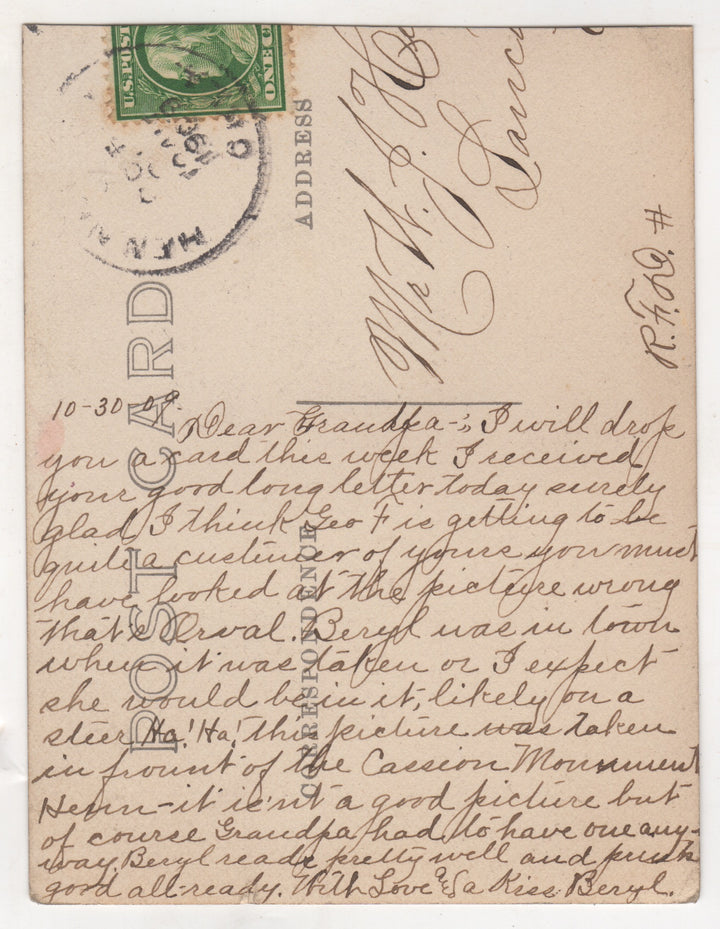 U.S. POST
ONE C
HEN
POST CARD
ADDRESS
CORRESPONDENCE
Mr W. J.
R.F.D. #
10-30-09.
Dear Grandpa-; I will drop
you a card this week I received
your good long letter today surely
glad, I think Geo F is getting to be
quite a custimer of yours you must
have looked at the picture wrong
that's Orval. Beryl was in town
when it was taken or I expect
she would be in it, likely on a
steer Ha! Ha! this picture was taken
in frount of the Cassion Monument
Henn- it is'nt a good picture but
of course Grandpa had to have one any-
way. Beryl reads pretty well and
good all-ready. With Love & a Kiss Beryl.